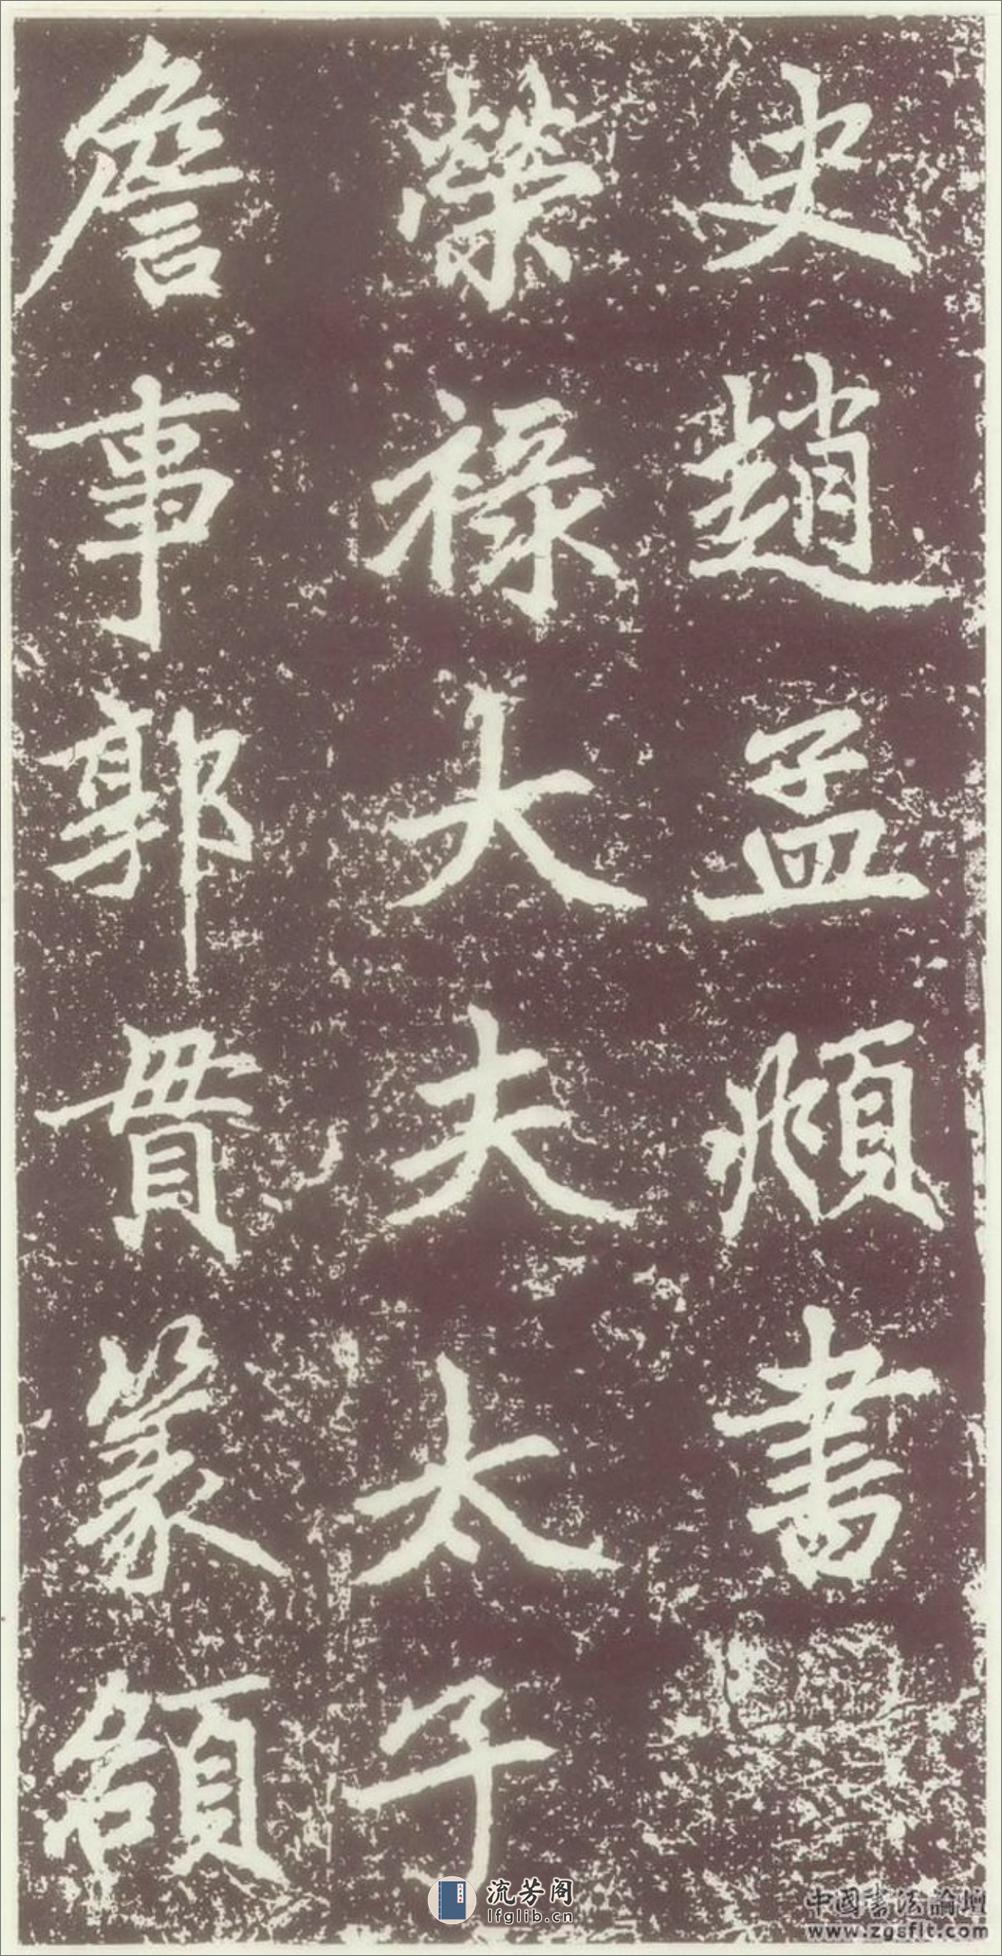 史趙孟頫書
榮祿大夫太子
詹事郭貫篆額
流芳阁
lfglib.cn
中国书法論壇
www.zgsflt.com